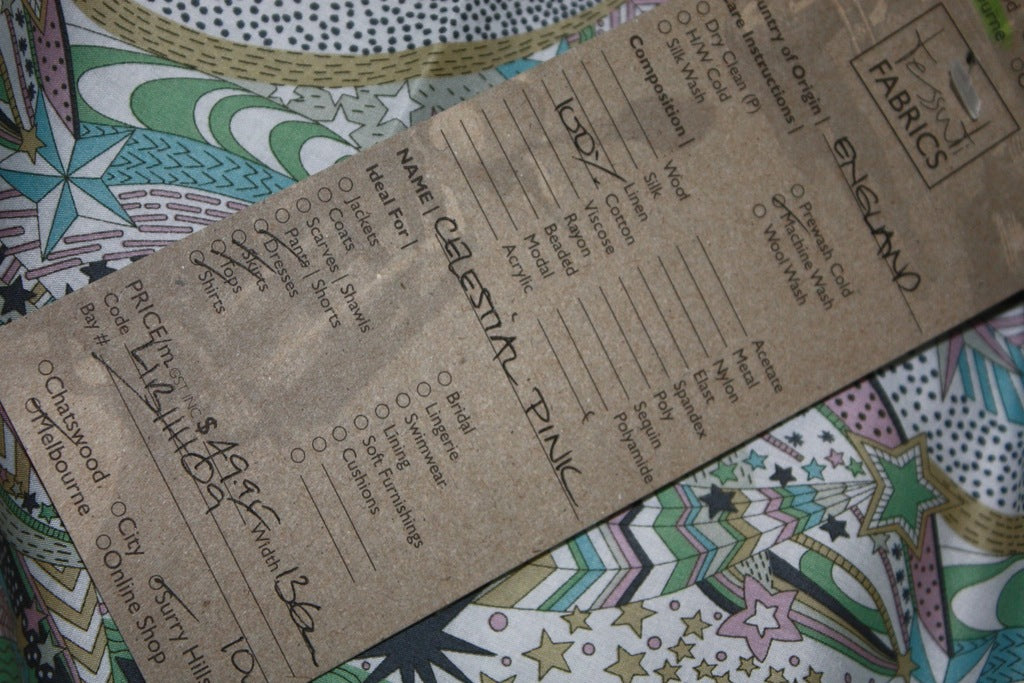 Tessuti
FABRICS
ourne
Country of Origin | ENGLAND
Care Instructions |
Dry Clean (P)
H/W Cold
Silk Wash
Prewash Cold
Machine Wash
Wool Wash
Composition |
Wool
Silk
Linen
100% Cotton
Viscose
Rayon
Beaded
Modal
Acrylic
Acetate
Metal
Nylon
Elast
Spandex
Poly
Sequin
Polyamide
NAME | CELESTIAL PINK
Ideal For |
Jackets
Coats
Scarves | Shawls
Pants | Shorts
Dresses
Skirts
Tops
Shirts
Bridal
Lingerie
Swimwear
Lining
Soft Furnishings
Cushions
PRICE/m GST INC $49.95 Width 136
Code
Bay #
Chatswood
Melbourne
City
Online Shop
Surry Hills
10